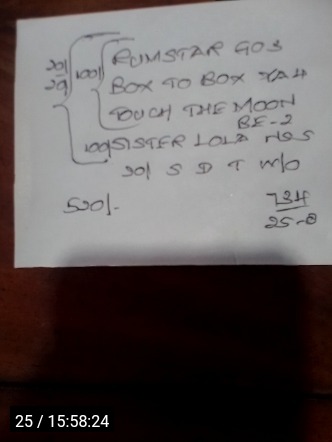 20/ 20/ 100/ RUMSTAR GO3
BOX TO BOX YA4
TOUCH THE MOON
BE-2
100/ SISTER LOLA NS5
20/ S D T W/O
520/-
734
25-8
25 / 15:58:24